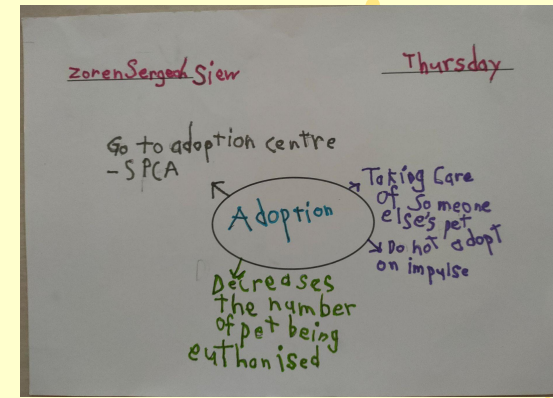 Zoren Sergech Siew
Thursday
Go to adoption centre
- SPCA
Adoption
Taking Care
of Someone
else's pet
Do not adopt
on impulse
Decreases
the number
of pet being
euthonised